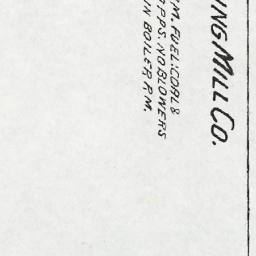 ING MILL CO.
M. FUEL: COAL &
PPS. NO BLOWERS
IN BOILER RM.